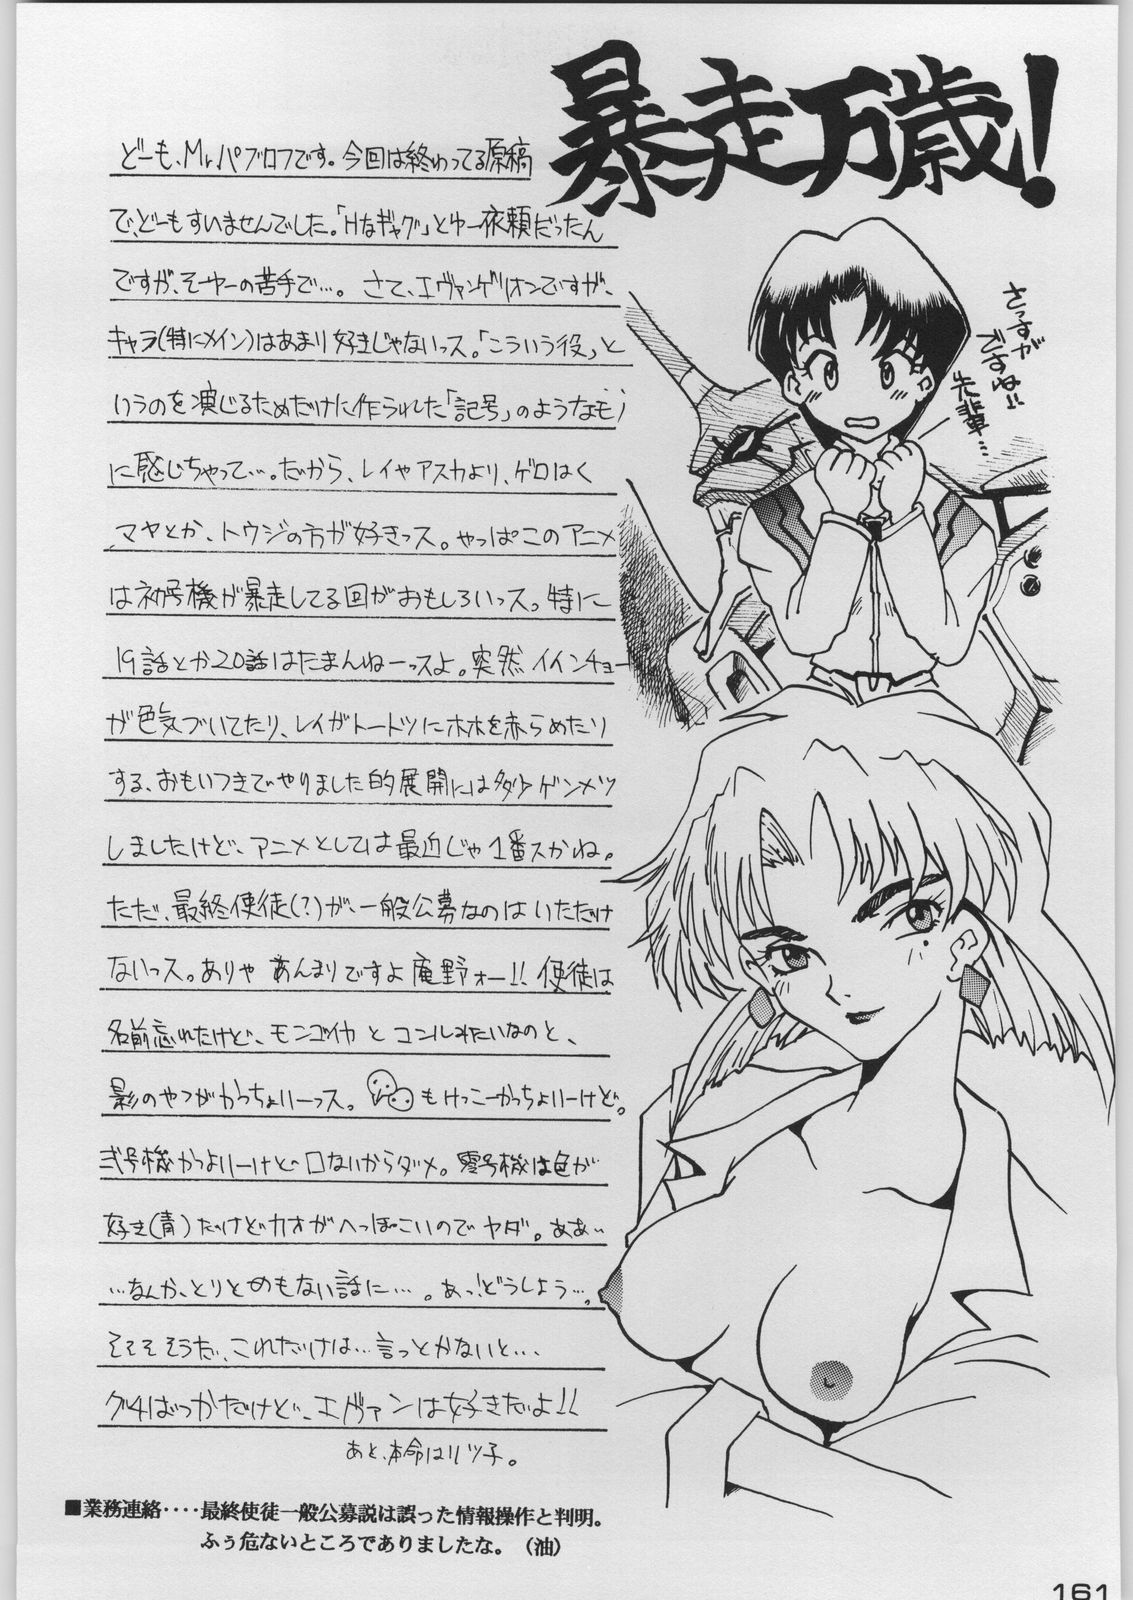 暴走万歳!
どーも、Mr.パブロフです。今回は終わってる原稿
で、どーもすいませんでした。「Hなギャグ」とゆー依頼だったん
ですが、そーゆーの苦手で…。さて、エヴァンゲリオンですが、
キャラ(特にメイン)はあまり好きじゃないっス。「こういう役」と
いうのを演じるためだけに作られた「記号」のようなモノ
に感じちゃって…。だから、レイやアスカより、ゲロはく
マヤとか、トウジの方が好きっス。やっぱこのアニメ
は初号機が暴走してる回がおもしろいっス。特に
19話とか20話はたまんねーっスよ。突然イインチョー
が色気づいてたり、レイがトートツにホホを赤らめたり
する、おもいつきでやりました的展開には多少ゲンメツ
しましたけど、アニメとしては最近じゃ1番スかね。
ただ、最終使徒(?)が、一般公募なのはいただけ
ないっス。ありゃあんまりですよ庵野ォー!!使徒は
名前忘れたけど、モンゴイカとコンルみたいなのと、
影のやつがかっちょいーっス。もけっこーかっちょいーけど。
弐号機かっよいーけど口ないからダメ。零号機は色が
好き(青)だけどカオがへっぽこいのでヤダ。ああ…
…なんか、とりとめもない話に…。あっ!どうしよう…。
そそそそうだ、これだけは…言っとかないと…
グチばっかだけど、エヴァンは好きだよ!!
あと、本命はリツ子。
さっすが
ですね!!
先輩…
■業務連絡‥‥最終使徒一般公募説は誤った情報操作と判明。
ふぅ危ないところでありましたな。(油)
161